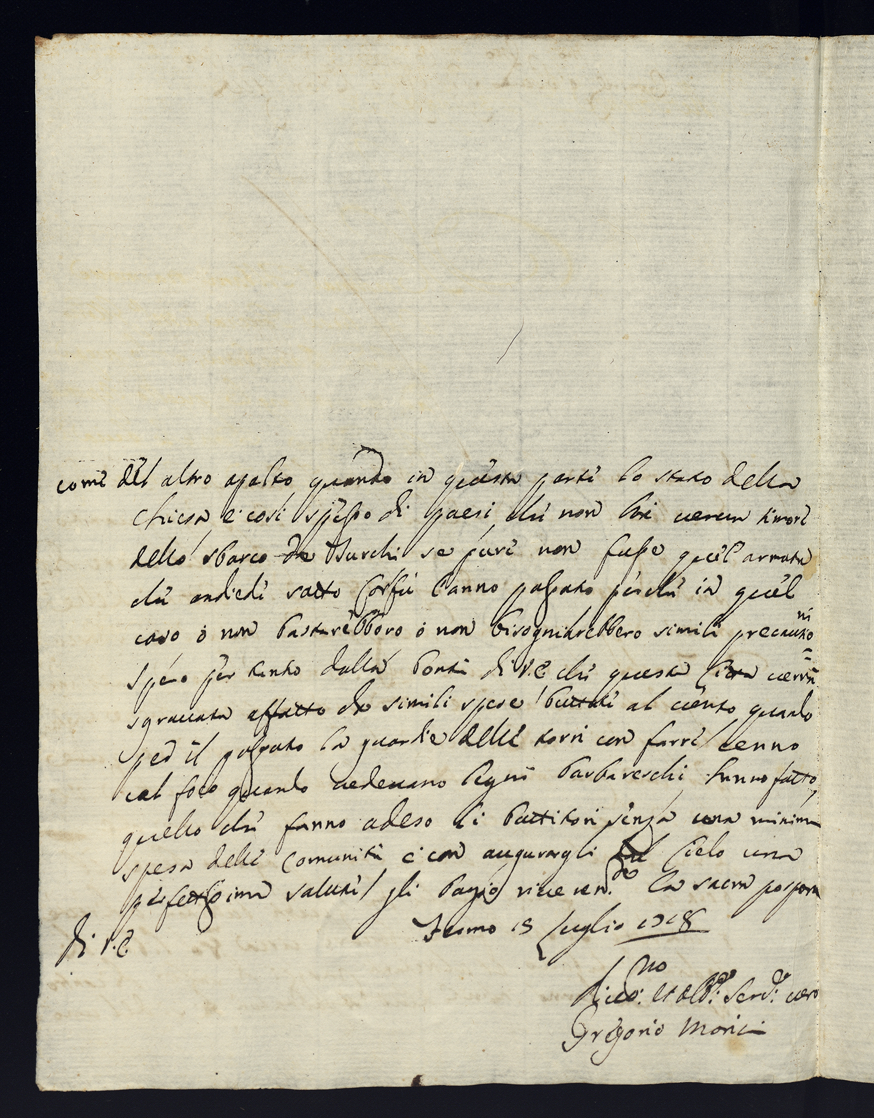 come del altro apalto quando in questa parte lo stato della
chiesa e cosi spesso di paesi che non hà verun timore
dello sbarco de Turchi se pure non fusse quel armata
che andiedi sotto Corfù l'anno passato perche in quel
caso ò non bastarebboro ò non bisogniarebbero simili precautioni
spero per tanto dalla bontà di V.E che questa Città verrà
sgravata affatto da simili spese buttate al vento quando
ped il passato la guardie delle torri con farri cenno
col foco quando vedevano legni barbareschi hanno fatto
quello che fanno adeso li battitori senza una minima
spesa delle comunità e con augurargli dal Cielo una
perfettissima salute gli bagio riveren.te la sacra porpora
Di V.E
Fermo 15 Luglio 1718
Divo.mo et obl.o Ser.e vero
Gregorio Morici